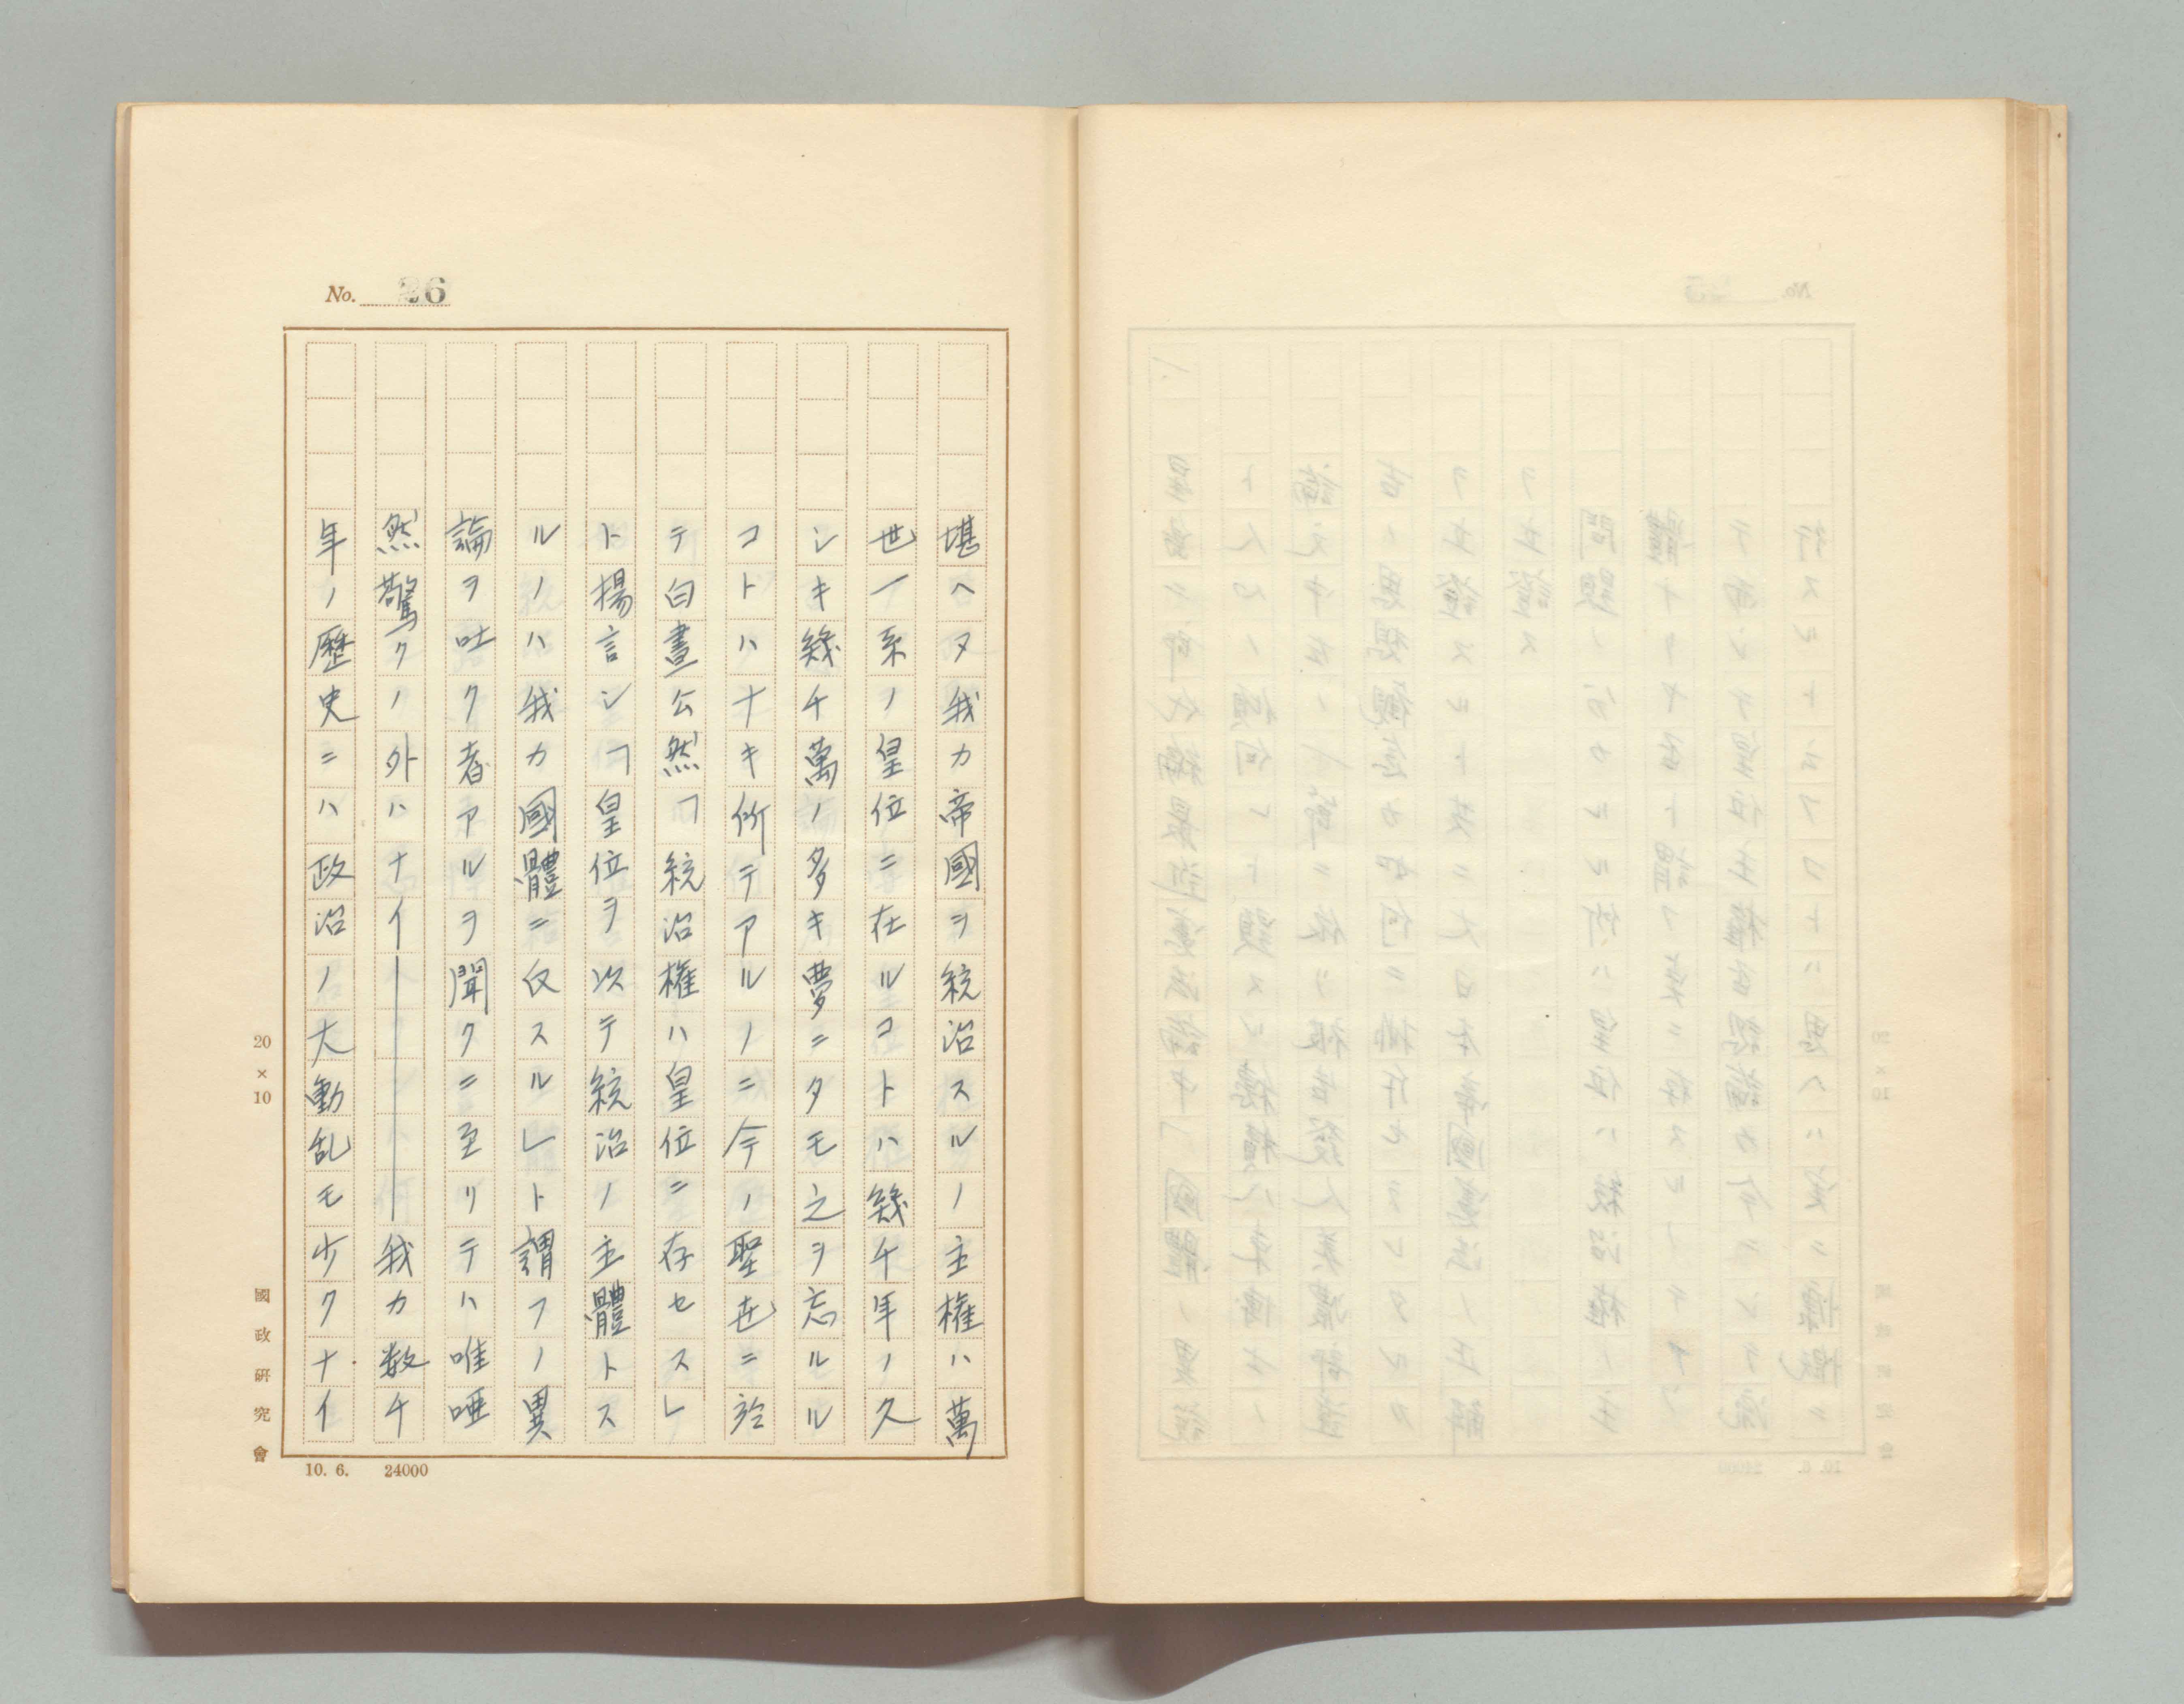 No. 26
堪ヘヌ我カ帝國ヲ統治スルノ主権ハ萬
世一系ノ皇位ニ在ルコトハ幾千年ノ久
シキ幾千萬ノ多キ夢ニタモ之ヲ忘ルル
コトハナキ所テアルノニ今ノ聖世ニ於
テ白晝公然「統治権ハ皇位ニ存セスレ
ト揚言シ「皇位ヲ以テ統治ノ主體トス
ルノハ我カ國體ニ反スル」ト謂フノ異
論ヲ吐ク者アルヲ聞クニ至リテハ唯唖
然驚クノ外ハナイ―――我カ数千
年ノ歴史ニハ政治ノ大動乱モ少クナイ
20×10
國政研究會
10. 6. 24000